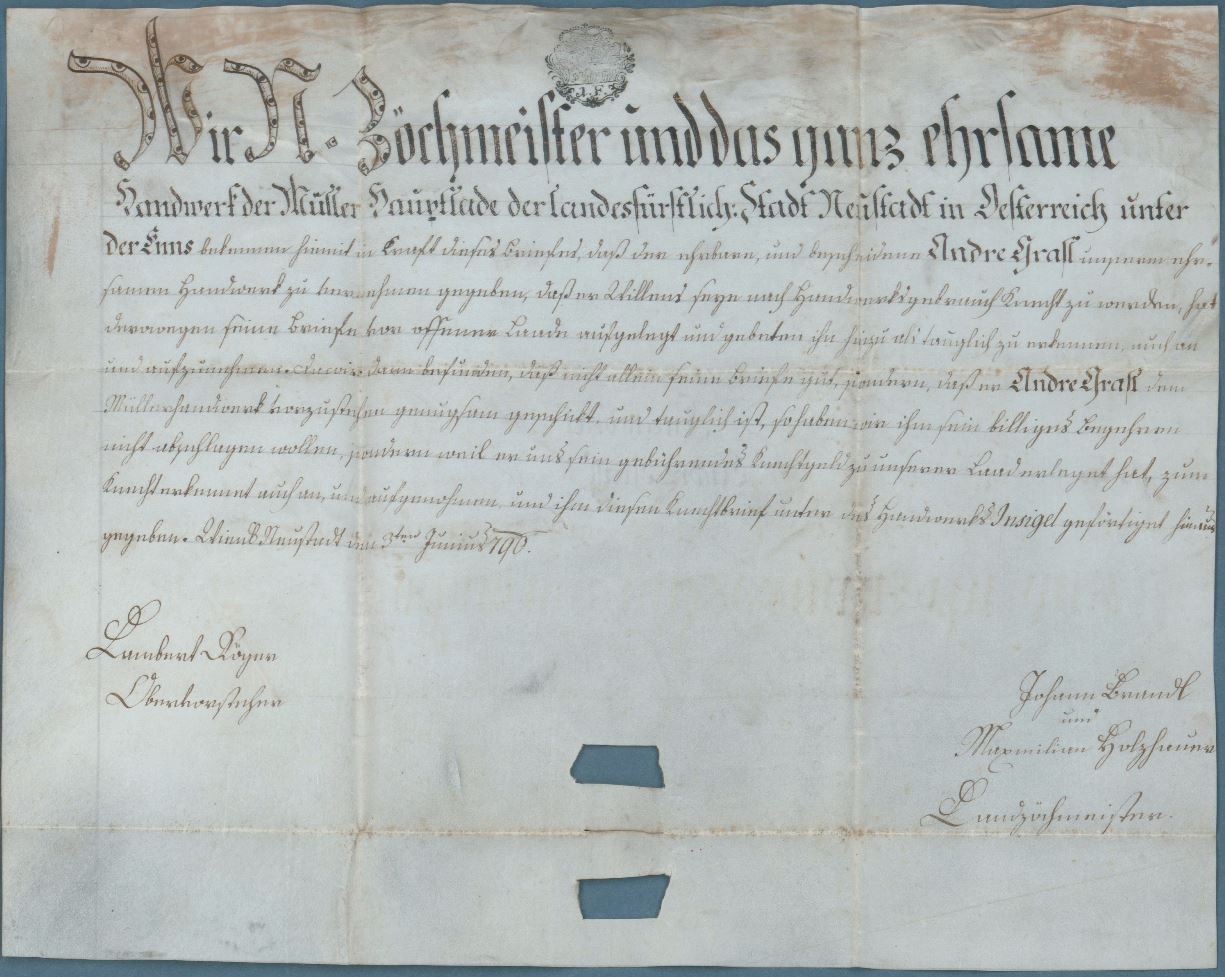 1. F.
Wir N. Zöchmeister und das ganz ehrsame
Handwerk der Müller Hauptlade der landesfürstlich: Stadt Neustadt in Oesterreich unter
der Enns bekennen hiemit in Kraft dieses Briefes, daß der ehrbare, und bescheidene Andre Grasl unserem ehr-
samen Handwerk zu vernehmen gegeben, daß er Willens seye nach Handwerksgebrauch Knecht zu werden, hat
derowegen seine Briefe vor offener Laade aufgelegt und gebeten ihn hiezu als tauglich zu erkennen, auch an
und aufzunehmen. wir dann befunden, daß nicht allein seine Briefe gut, sondern, daß er Andre Grasl dem
Müllerhandwerk vorzustehen genugsam geschickt, und tauglich ist, so haben wir ihm sein billiges Begehren
nicht abschlagen wollen, sondern weil er uns sein gebührendes Knechtgeld zu unserer Laad erleget hat, zum
Knecht erkennet auch an, und aufgenohmen, und ihm diesen Knechtbrief unter des Handwerks Insigel gefertiget hinaus
gegeben. Wien: Neustadt den 3ten Junius 790.
Lambert Röger
Obervorsteher
Johann Brandl
und
Maxmilian Holzhauer
Landzöchmeister.